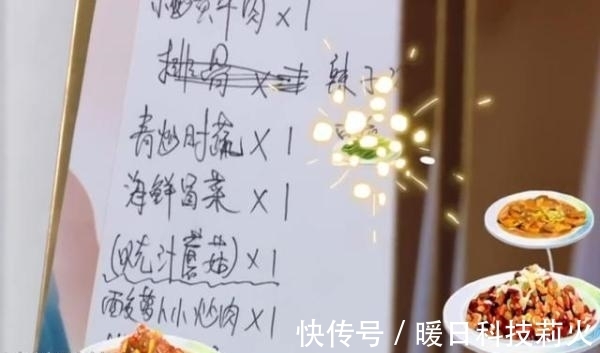 小炒黄牛肉 x 1
排骨 x 1 辣子
青炒时蔬 x 1
海鲜冒菜 x 1
(兜汁蘑菇) x 1
酸萝卜小炒肉 x 1
快传号 / 暖日科技莉火